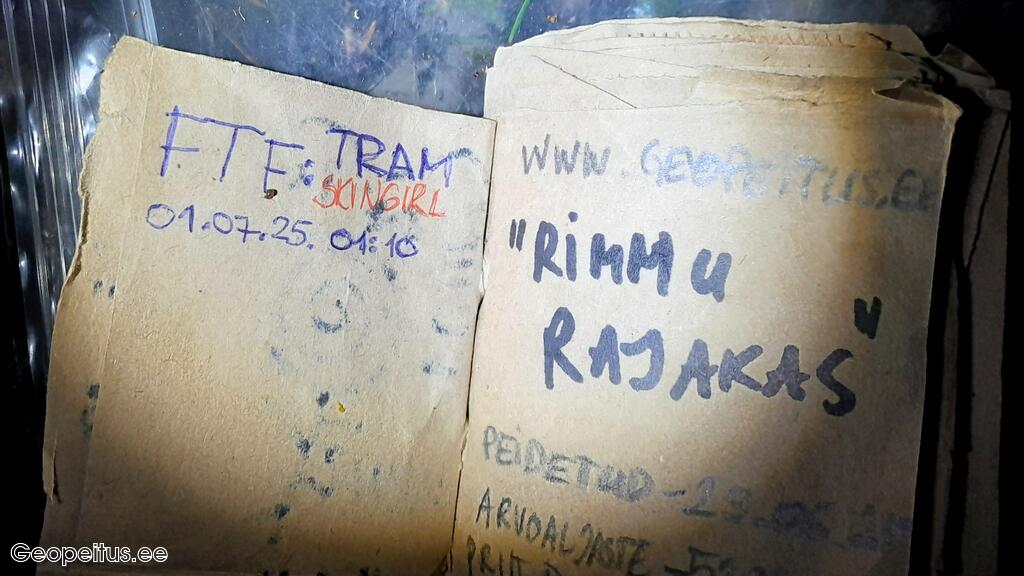 FTF: TRAM
SKINGIRL
01.07.25. 01:10
WWW.GEOPEITUS.EE
"RIMMU
RAJAKAS"
PEIDETUD - 29.
ARVDALJASTE
PRIIT
Geopeitus.ee